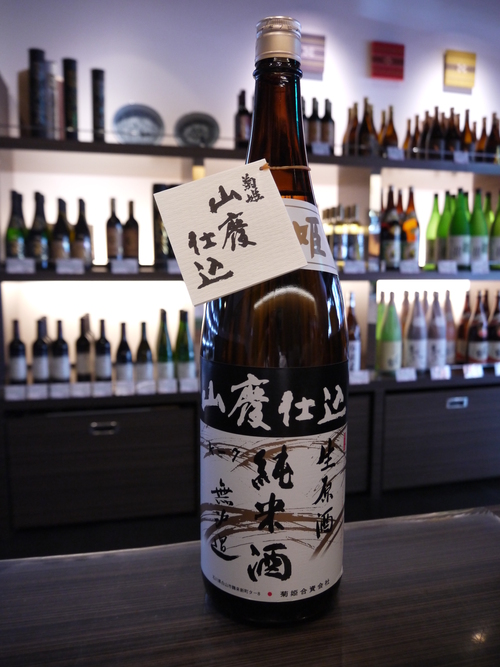 菊姫
山廃
仕込
姫
山廃仕込
生原酒
純米酒
無濾過
菊姫合資会社